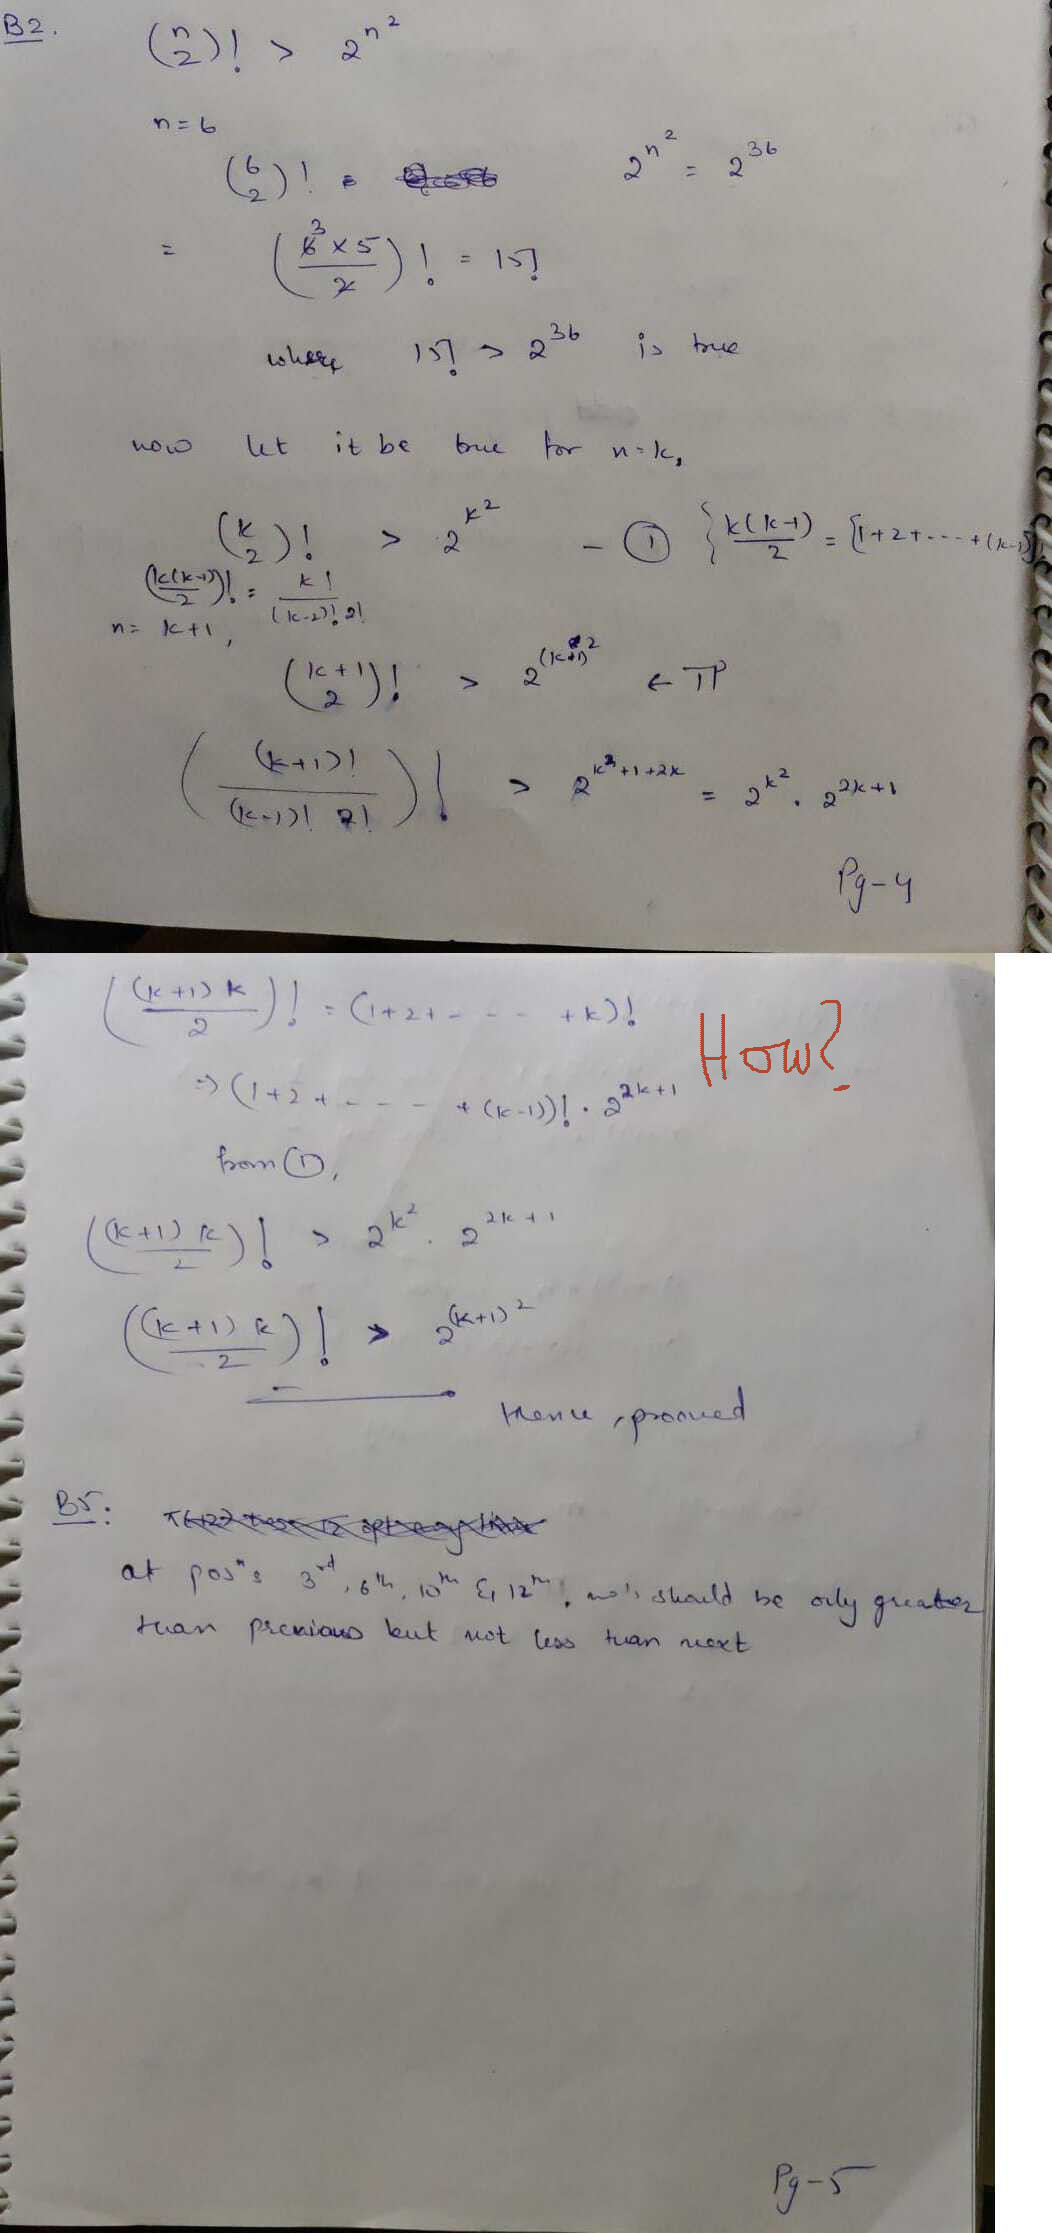 B2. (n 2)! > 2^{n^2}
n = 6
(6 2)! =    2^{n^2} = 2^{36}
= (6^3 × 5 / 2)! = 15!
where 15! > 2^{36} is true
now let it be true for n=k,
(k 2)! > 2^{k^2} — ① { k(k-1)/2 = [1+2+----+(k-1)]
(k(k-1)/2)! = k! / (k-2)! 2!
n = k+1,
(k+1 2)! > 2^{(k+1)^2} ← TP
((k+1)! / (k-1)! 2!)! > 2^{k^2+1+2k} = 2^{k^2} . 2^{2k+1}
Pg-4
((k+1) k / 2)! = (1+2+- - - - +k)!
How?
⇒ (1+2+- - - - +(k-1))! . 2^{2k+1}
from ①,
((k+1) k / 2)! > 2^{k^2} . 2^{2k+1}
((k+1) k / 2)! > 2^{(k+1)^2}
Hence, prooved
B5:
at pos^n: 3^{rd}, 6^{th}, 10^{th} & 12^{th}, no's should be only greater
than previous but not less than next
Pg-5